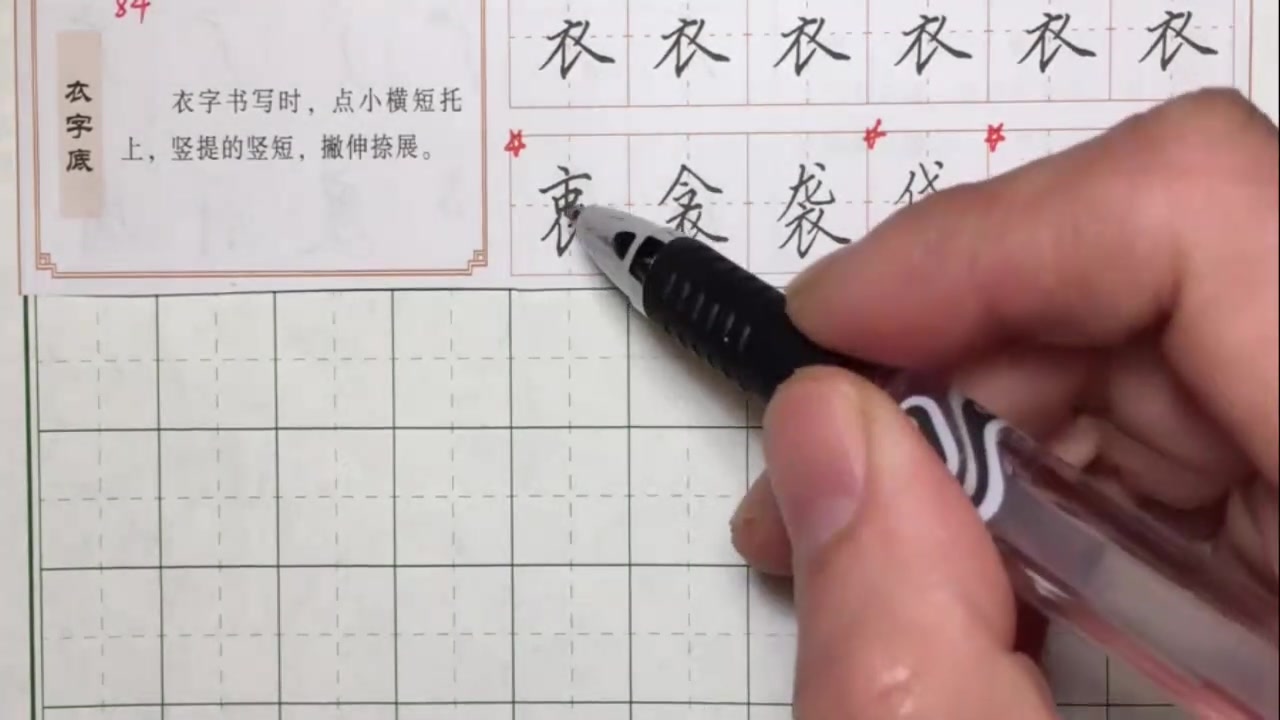 84
衣字底
衣字书写时，点小横短托
上，竖提的竖短，撇伸捺展。
衣 衣 衣 衣 衣 衣
衷 衾 袭